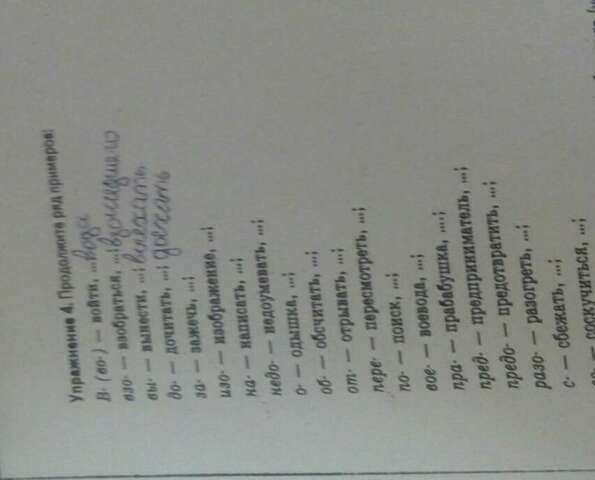 Упражнение 4. Продолжите ряд примеров:
в- (во-) — войти, ...;
взо- — взобраться, ...;
вы- — вынести, ...; выехать
до- — дочитать, ...; доехать
за- — зажечь, ...;
изо- — изображение, ...;
на- — написать, ...;
недо- — недоумевать, ...;
о- — одышка, ...;
об- — обсчитать, ...;
от- — отрывать, ...;
пере- — пересмотреть, ...;
по- — поиск, ...;
вое- — воевода, ...;
пра- — прабабушка, ...;
пред- — предприниматель, ...;
предо- — предотвратить, ...;
разо- — разогреть, ...;
с- — сбежать, ...;
— соскучиться, ...;